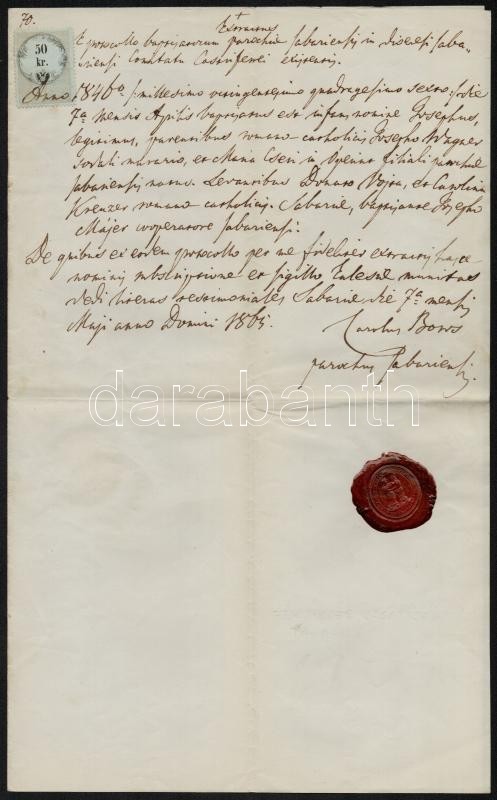 70.
50
kr.
Extractus
E protocollo baptisatorum parochiae Sabariensis in dioecesi Saba-
riensi Comitatu Castriferrei existentis.
Anno 1846o /: millesimo octingentesimo quadragesimo sexto :/ die
7a mensis Aprilis baptisatus est infans, nomine Josephus,
legitimus, parentibus romano-catholicis, Josepho Wagner
sodali murario, et Maria Cseri in filiali parochiae
Sabariensis natus. Levantibus Donato Vojta, et Carolina
Kreuzer romano-catholicis. Sabariae, baptisante Josepho
Májer cooperatore Sabariensi.
De quibus ex eodem protocollo per me fideliter extractis hasce
nominis subscriptione et sigillo Ecclesiae munitas
dedi literas testimoniales. Sabariae die 7a mensis
Maji anno Domini 1865.
Carolus Boros
parochus Sabariensis.
darabanth